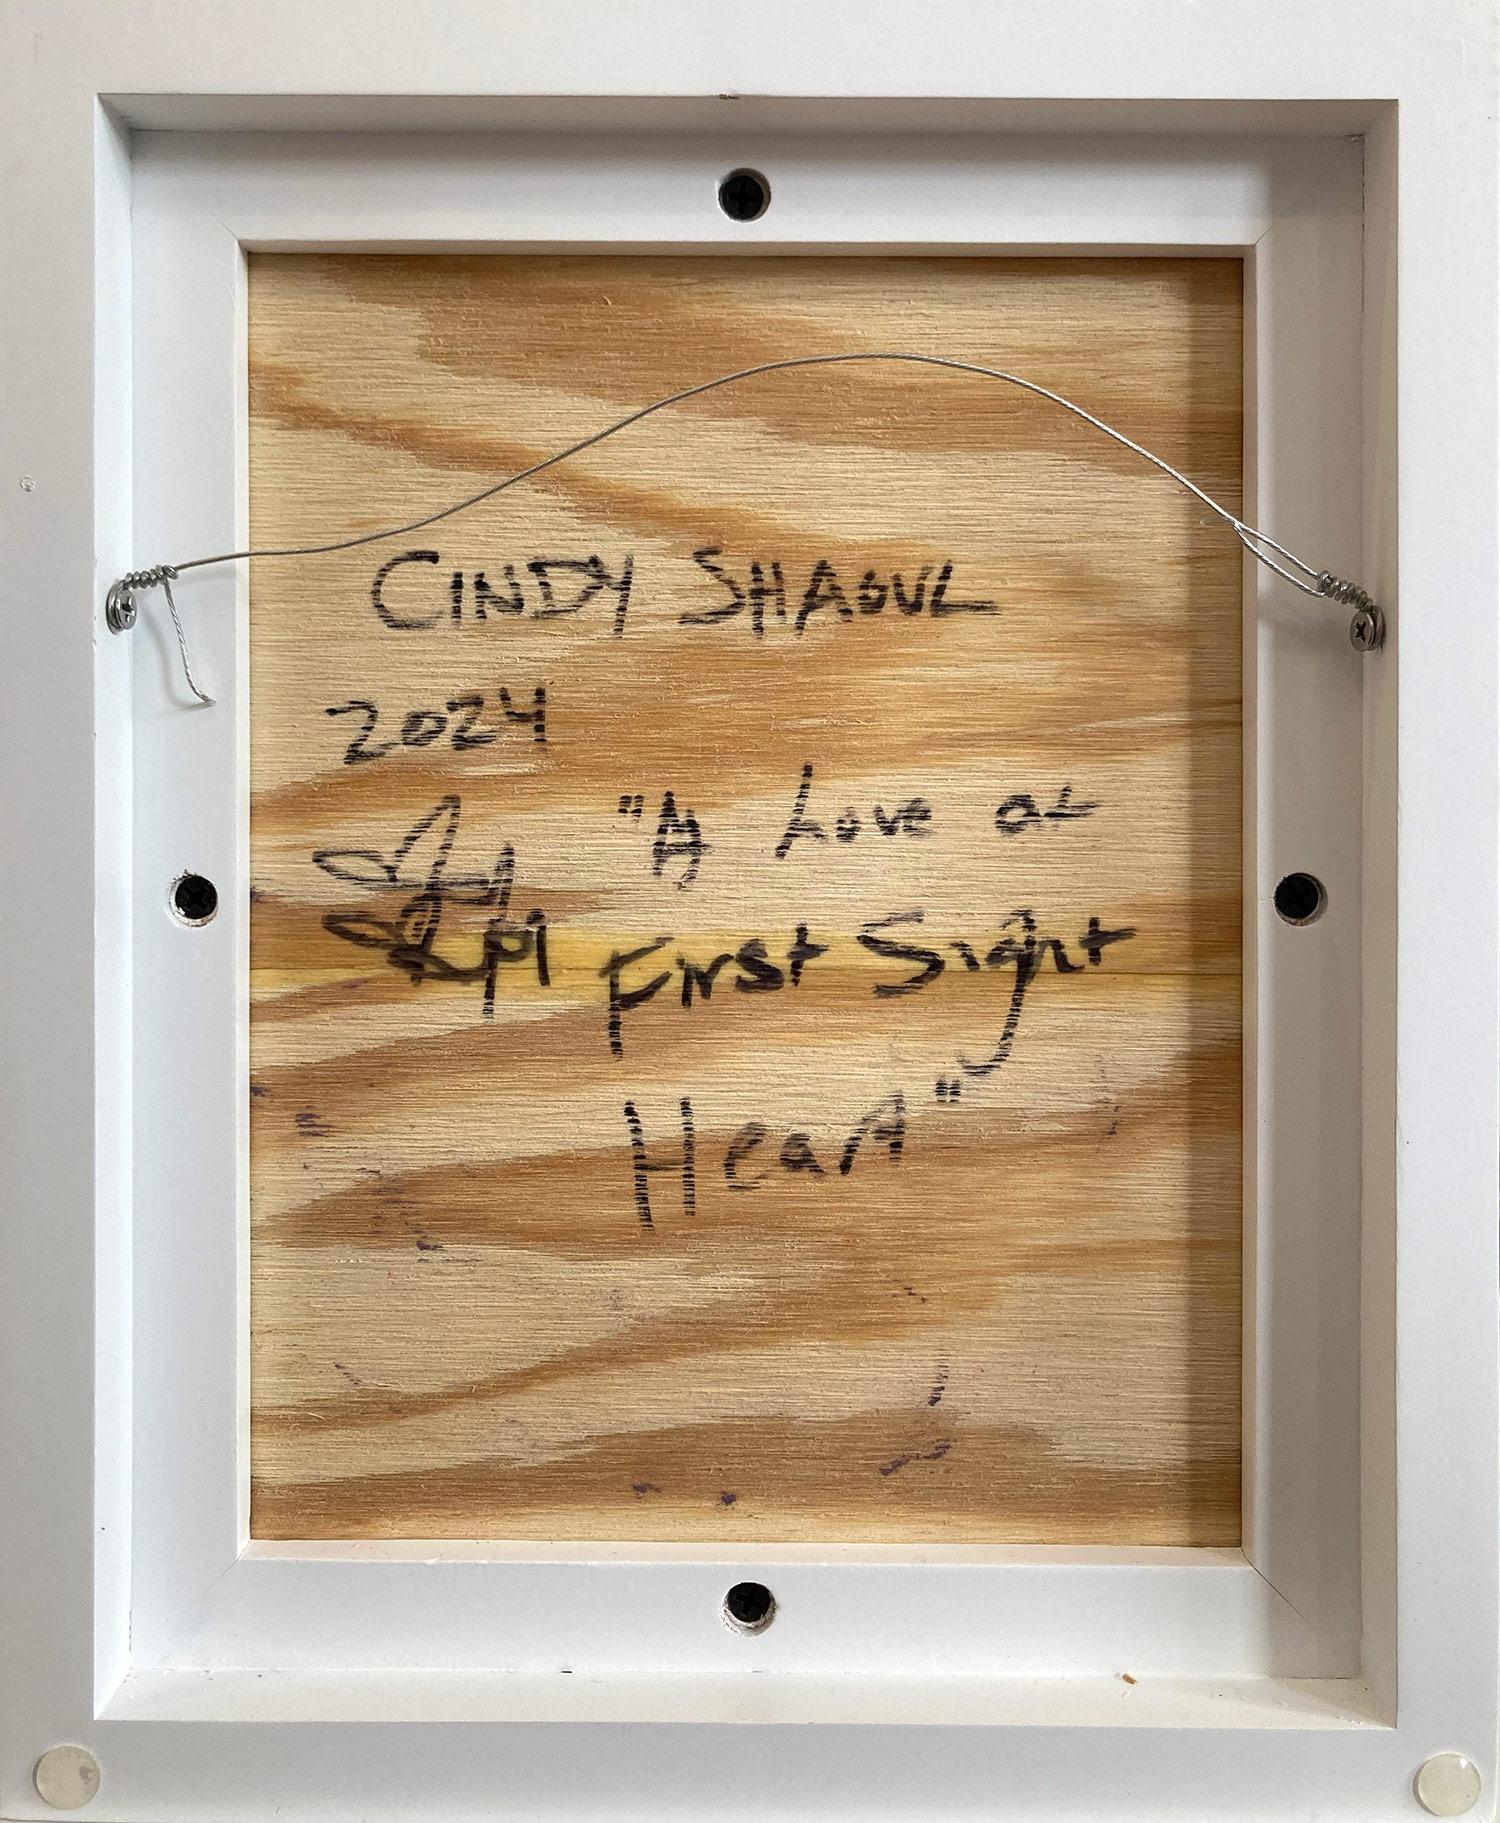 CINDY SHAOUL
2024
"A Love at
First Sight
Heart"